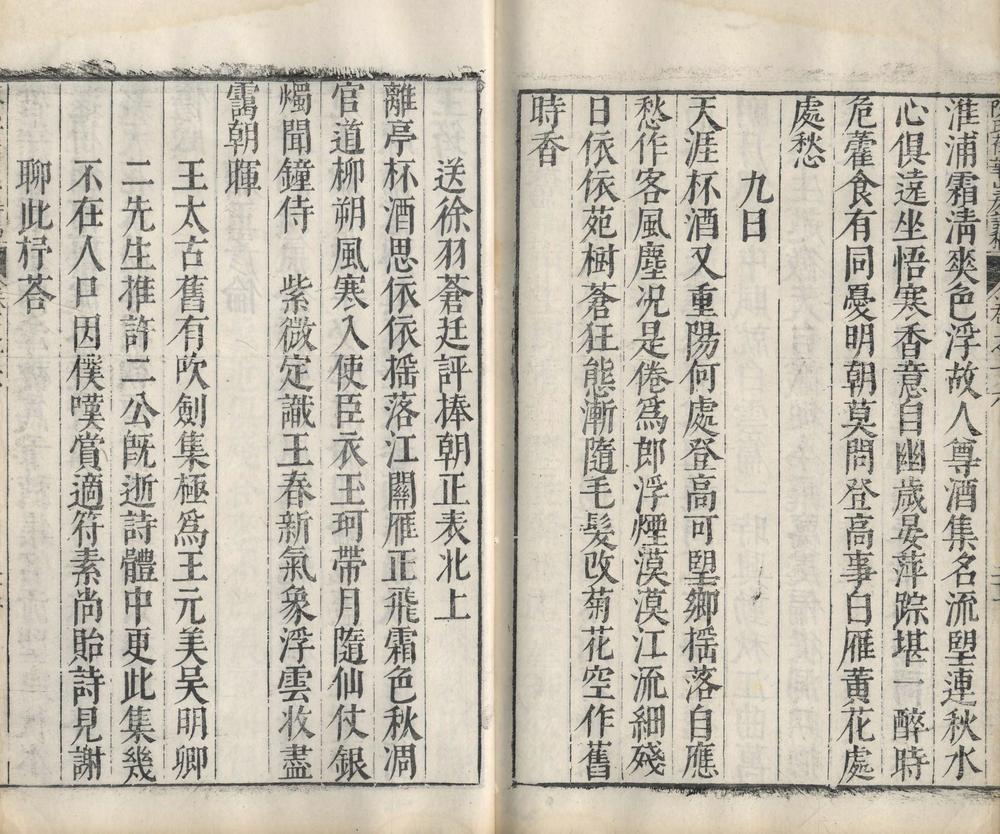 淮浦霜清爽色浮故人尊酒集名流望連秋水
心俱遠坐悟寒香意自幽歲晏萍踪堪一醉時
危藿食有同憂明朝莫問登高事白雁黃花處
處愁
九日
天涯杯酒又重陽何處登高可望鄉搖落自應
愁作客風塵况是倦為郎浮煙漠漠江流細殘
日依依苑樹蒼狂態漸隨毛髮改菊花空作舊
時香
送徐羽蒼廷評捧朝正表北上
離亭杯酒思依依搖落江關雁正飛霜色秋凋
官道柳朔風寒入使臣衣玉珂帶月隨仙仗銀
燭聞鐘侍　紫微定識王春新氣象浮雲收盡
靄朝暉
王太古舊有吹劍集極為王元美吳明卿
二先生推許二公旣逝詩體中更此集幾
不在人口因僕嘆賞適符素尚貽詩見謝
聊此抒荅